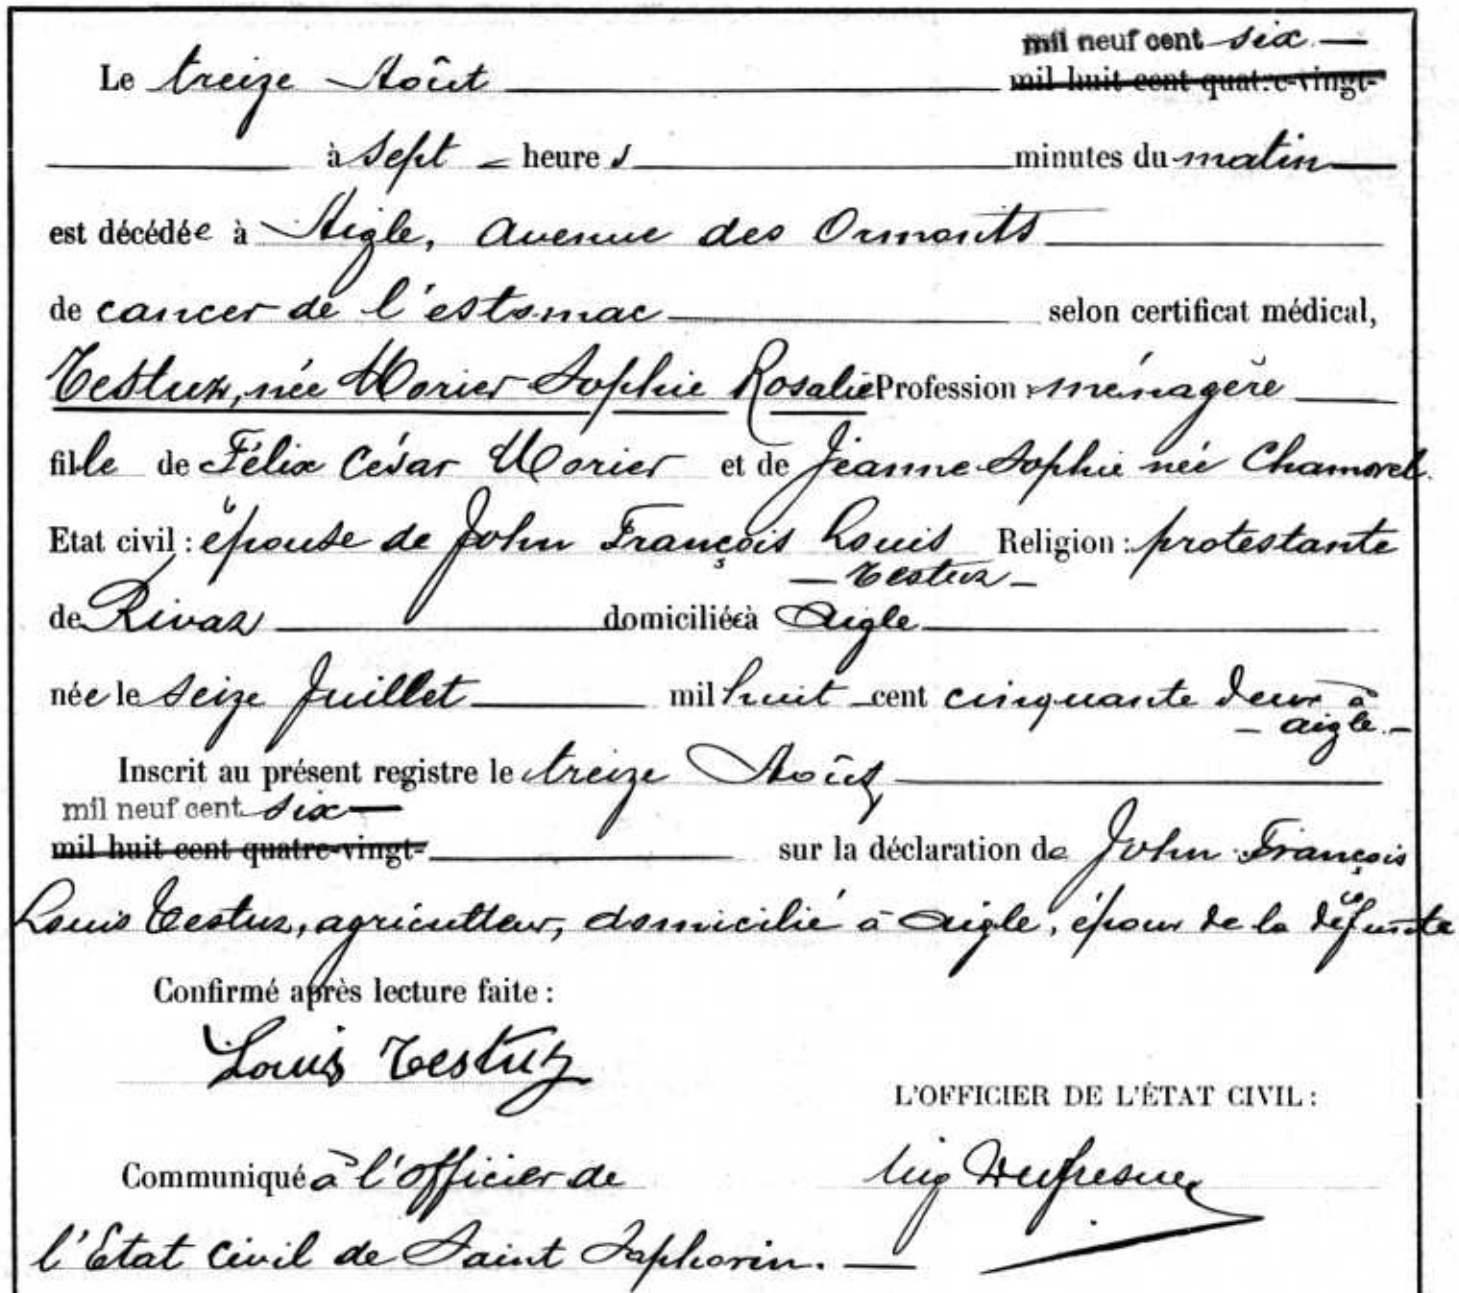 mil neuf cent six
Le treize Août mil huit cent quatre-vingt-
à Sept heures minutes du matin
est décédée à Aigle, Avenue des Ormonts
de cancer de l'estomac selon certificat médical,
Testuz, née Morier Sophie Rosalie Profession : ménagère
fille de Félix César Morier et de Jeanne Sophie née Chamorel.
Etat civil : épouse de John François Louis Religion : protestante
– Testuz –
de Rivaz domiciliée à Aigle
née le seize Juillet mil huit cent cinquante deux à
– Aigle. –
Inscrit au présent registre le treize Août
mil neuf cent six
mil huit cent quatre-vingt- sur la déclaration de John François
Louis Testuz, agriculteur, domicilié à Aigle, époux de la défunte
Confirmé après lecture faite :
Louis Testuz
L'OFFICIER DE L'ÉTAT CIVIL :
Communiqué à l'officier de Dufresne
l'Etat civil de Saint Saphorin.